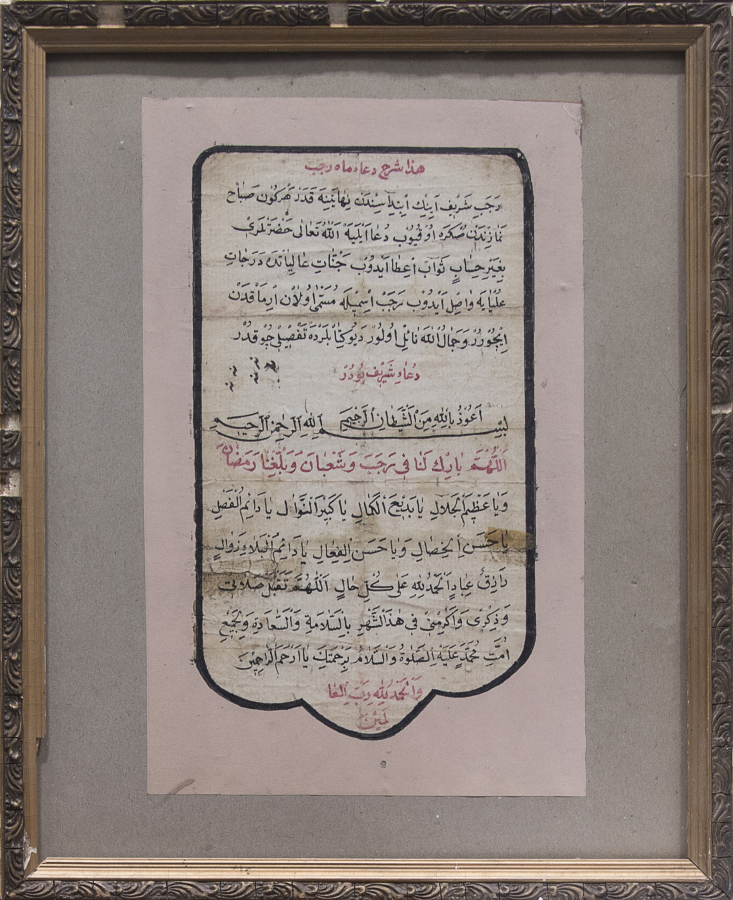 هذا شرح دعاء ماه رجب
رجب شريف آينك ابتداسندن نهايتينه قدر هركون صباح
نمازندن صكره اوقيوب دعا ايليه الله تعالى حضرتلرى
بغير حساب ثواب اعطا ايدوب جنات عالياتده درجات
عليايه واصل ايدوب رجب اسميله مسمى اولان ارماقدن
ايچورر وجمال الله نائل اولور ديو كتابلرده تفصيل چوقدر
دعاء شريف بودر
اعوذ بالله من الشيطان الرجيم
بسم الله الرحمن الرحيم
اللهم بارك لنا فى رجب وشعبان وبلغنا رمضان
ويا عظيم الجلال يا بديع الكمال يا كبير النوال يا دائم الفضل
يا حسن الخصال ويا حسن الفعال يا دائم البلا وزوال
رازق عباد الحمد لله على كل حال اللهم تقبل صلاتى
وذكرى واكرمنى فى هذا الشهر بالسلامة والسعادة ولجميع
امت محمد عليه الصلوة والسلام برحمتك يا ارحم الراحمين
والحمد لله رب العا
لمين